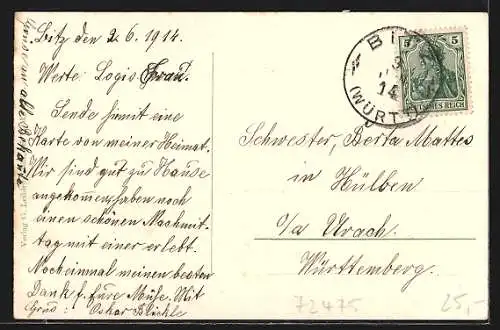 Bitz den 2.6.1914.
Werte Logis Frau.
Sende somit eine
Karte von meiner Heimat.
Wir sind gut zu Hause
angekommen, haben noch
einen schönen Nachmit-
tag mit einer erlebt.
Noch einmal meinen besten
Dank f. Eure Mühe. Mit
Grus: Oskar Blickle
an alle Bekannte
Verlag
BIT
14
(WÜRTT
5 5
DEUTSCHES REICH
Schwester, Berta Mattes
in Hülben
o/a Urach.
Württemberg.
72475
25,-